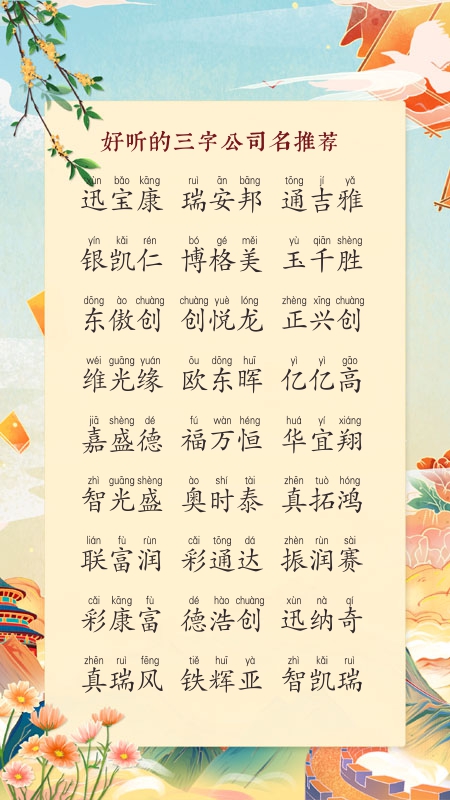 好听的三字公司名推荐
xùn bǎo kāng ruì ān bāng tōng jí yǎ
迅宝康 瑞安邦 通吉雅
yín kǎi rén bó gé měi yù qiān shèng
银凯仁 博格美 玉千胜
dōng ào chuàng chuàng yuè lóng zhèng xīng chuàng
东傲创 创悦龙 正兴创
wéi guāng yuán ōu dōng huī yì yì gāo
维光缘 欧东晖 亿亿高
jiā shèng dé fú wàn héng huá yí xiáng
嘉盛德 福万恒 华宜翔
zhì guāng shèng ào shí tài zhēn tuò hóng
智光盛 奥时泰 真拓鸿
lián fù rùn cǎi tōng dá zhèn rùn sài
联富润 彩通达 振润赛
cǎi kāng fù dé hào chuàng xùn nà qí
彩康富 德浩创 迅纳奇
zhēn ruì fēng tiě huī yà zhì kǎi ruì
真瑞风 铁辉亚 智凯瑞